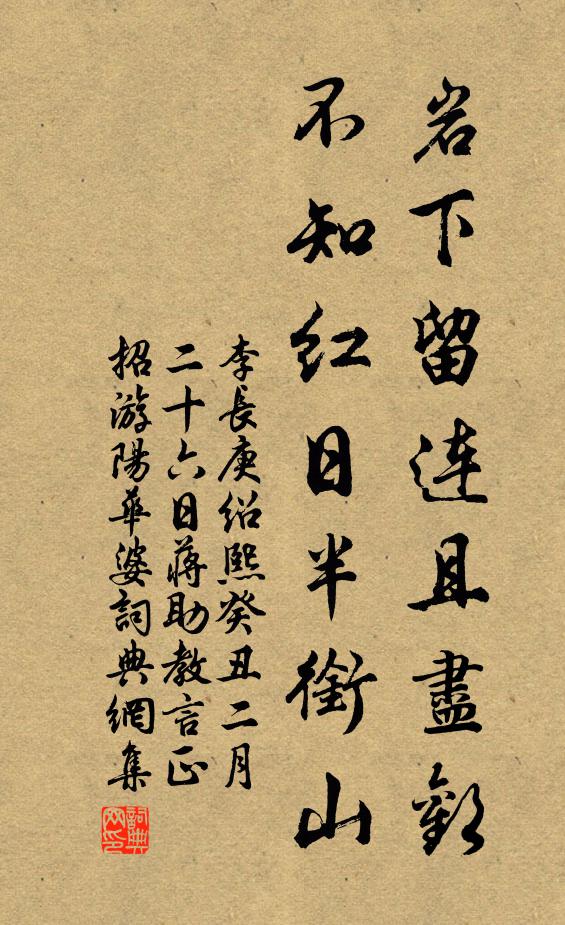 岩下留连且盡歡
不知红日半銜山
李長庚绍熙癸丑二月
二十六日蒋助教言正
招游陽華婆詞典網集
詞典网印